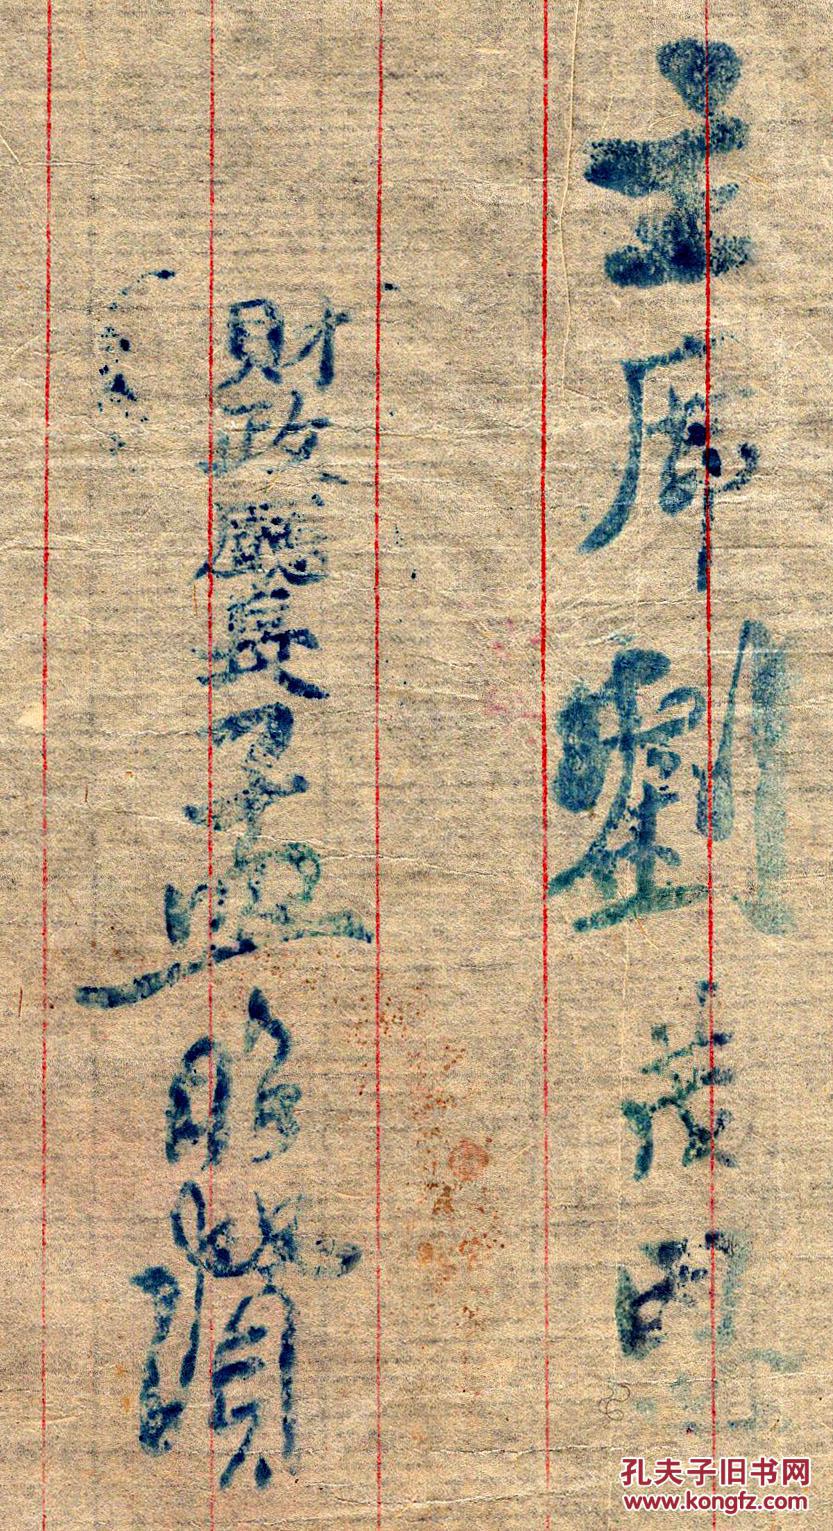 主席劉茂恩
財政廳長孟昭瓚
孔夫子旧书网
www.kongfz.com